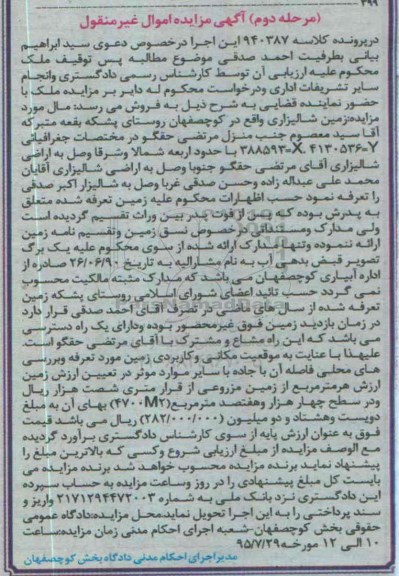 ۳۹۹
(مرحله دوم) آگهی مزایده اموال غیرمنقول
درپرونده کلاسه ۹۴۰۳۸۷ این اجرا درخصوص دعوی سید ابراهیم
بیانی بطرفیت احمد صدقی موضوع مطالبه پس توقیف ملک
محکوم علیه ارزیابی آن توسط کارشناس رسمی دادگستری وانجام
سایر تشریفات اداری ودرخواست محکوم له دایر بر مزایده ملک با
حضور نماینده قضایی به شرح ذیل به فروش می رسد: مال مورد
مزایده:زمین شالیزاری واقع در کوچصفهان روستای پشکه بقعه متبرکه
آقا سید معصوم جنب منزل مرتضی حقگو در مختصات جغرافیائی
X=۳۸۸۵۹۳ Y=۴۱۳۰۵۳۶ با حدود اربعه شمالا وشرقا وصل به اراضی
شالیزاری آقای مرتضی حقگو جنوبا وصل به اراضی شالیزاری آقایان
محمد علی عبداله زاده وحسن صدقی غربا وصل به شالیزار اکبر صدقی
را تعرفه نمود حسب اظهارات محکوم علیه زمین تعرفه شده متعلق
به پدرش بوده که پس از فوت پدر بین وراث تقسیم گردیده است
ولی مدارک ومستنداتی درخصوص نسق زمین وتقسیم نامه زمین
ارائه ننموده وتنها مدارک ارائه شده از سوی محکوم علیه یک برگ
تصویر قبض بدهی آب به نام مشارالیه به تاریخ ۲۶/۰۶/۹ صادره از
اداره آبیاری کوچصفهان می باشد که مدارک مثبته مالکیت محسوب
نمی گردد حسب تائید اعضای شورای اسلامی روستای پشکه زمین
تعرفه شده از سال های ماضی در تصرف آقای احمد صدقی قرار دارد
در زمان بازدید زمین فوق غیرمحصور بوده ودارای یک راه دسترسی
می باشد که این راه مشاع و مشترک با آقای مرتضی حقگو است
علیهذا با عنایت به موقعیت مکانی وکاربردی زمین مورد تعرفه وبررسی
های محلی فاصله آن با جاده یا سایر موارد موثر در تعیین ارزش زمین
ارزش هرمترمربع از زمین مزروعی از قرار متری شصت هزار ریال
ودر سطح چهار هزار وهفتصد مترمربع(۴۷۰۰M۲) بهای آن به مبلغ
دویست وهشتاد و دو میلیون (۲۸۲/۰۰۰/۰۰۰) ریال می باشد قیمت
فوق به عنوان ارزش پایه از سوی کارشناس دادگستری برآورد گردیده
مع الوصف مزایده از مبلغ ارزیابی شروع وکسی که بالاترین مبلغ را
پیشنهاد نماید برنده مزایده محسوب خواهد شد برنده مزایده می
بایست کل مبلغ پیشنهادی را در روز وساعت مزایده به حساب سپرده
این دادگستری نزد بانک ملی به شماره ۲۱۷۱۲۹۴۴۷۲۰۰۳ واریز و
سند پرداختی را به این اجرا تحویل نماید.محل مزایده:دادگاه عمومی
حقوقی بخش کوچصفهان-شعبه اجرای احکام مدنی زمان مزایده:ساعت
۱۰ الی ۱۲ مورخه ۹۵/۷/۲۹
مدیر اجرای احکام مدنی دادگاه بخش کوچصفهان